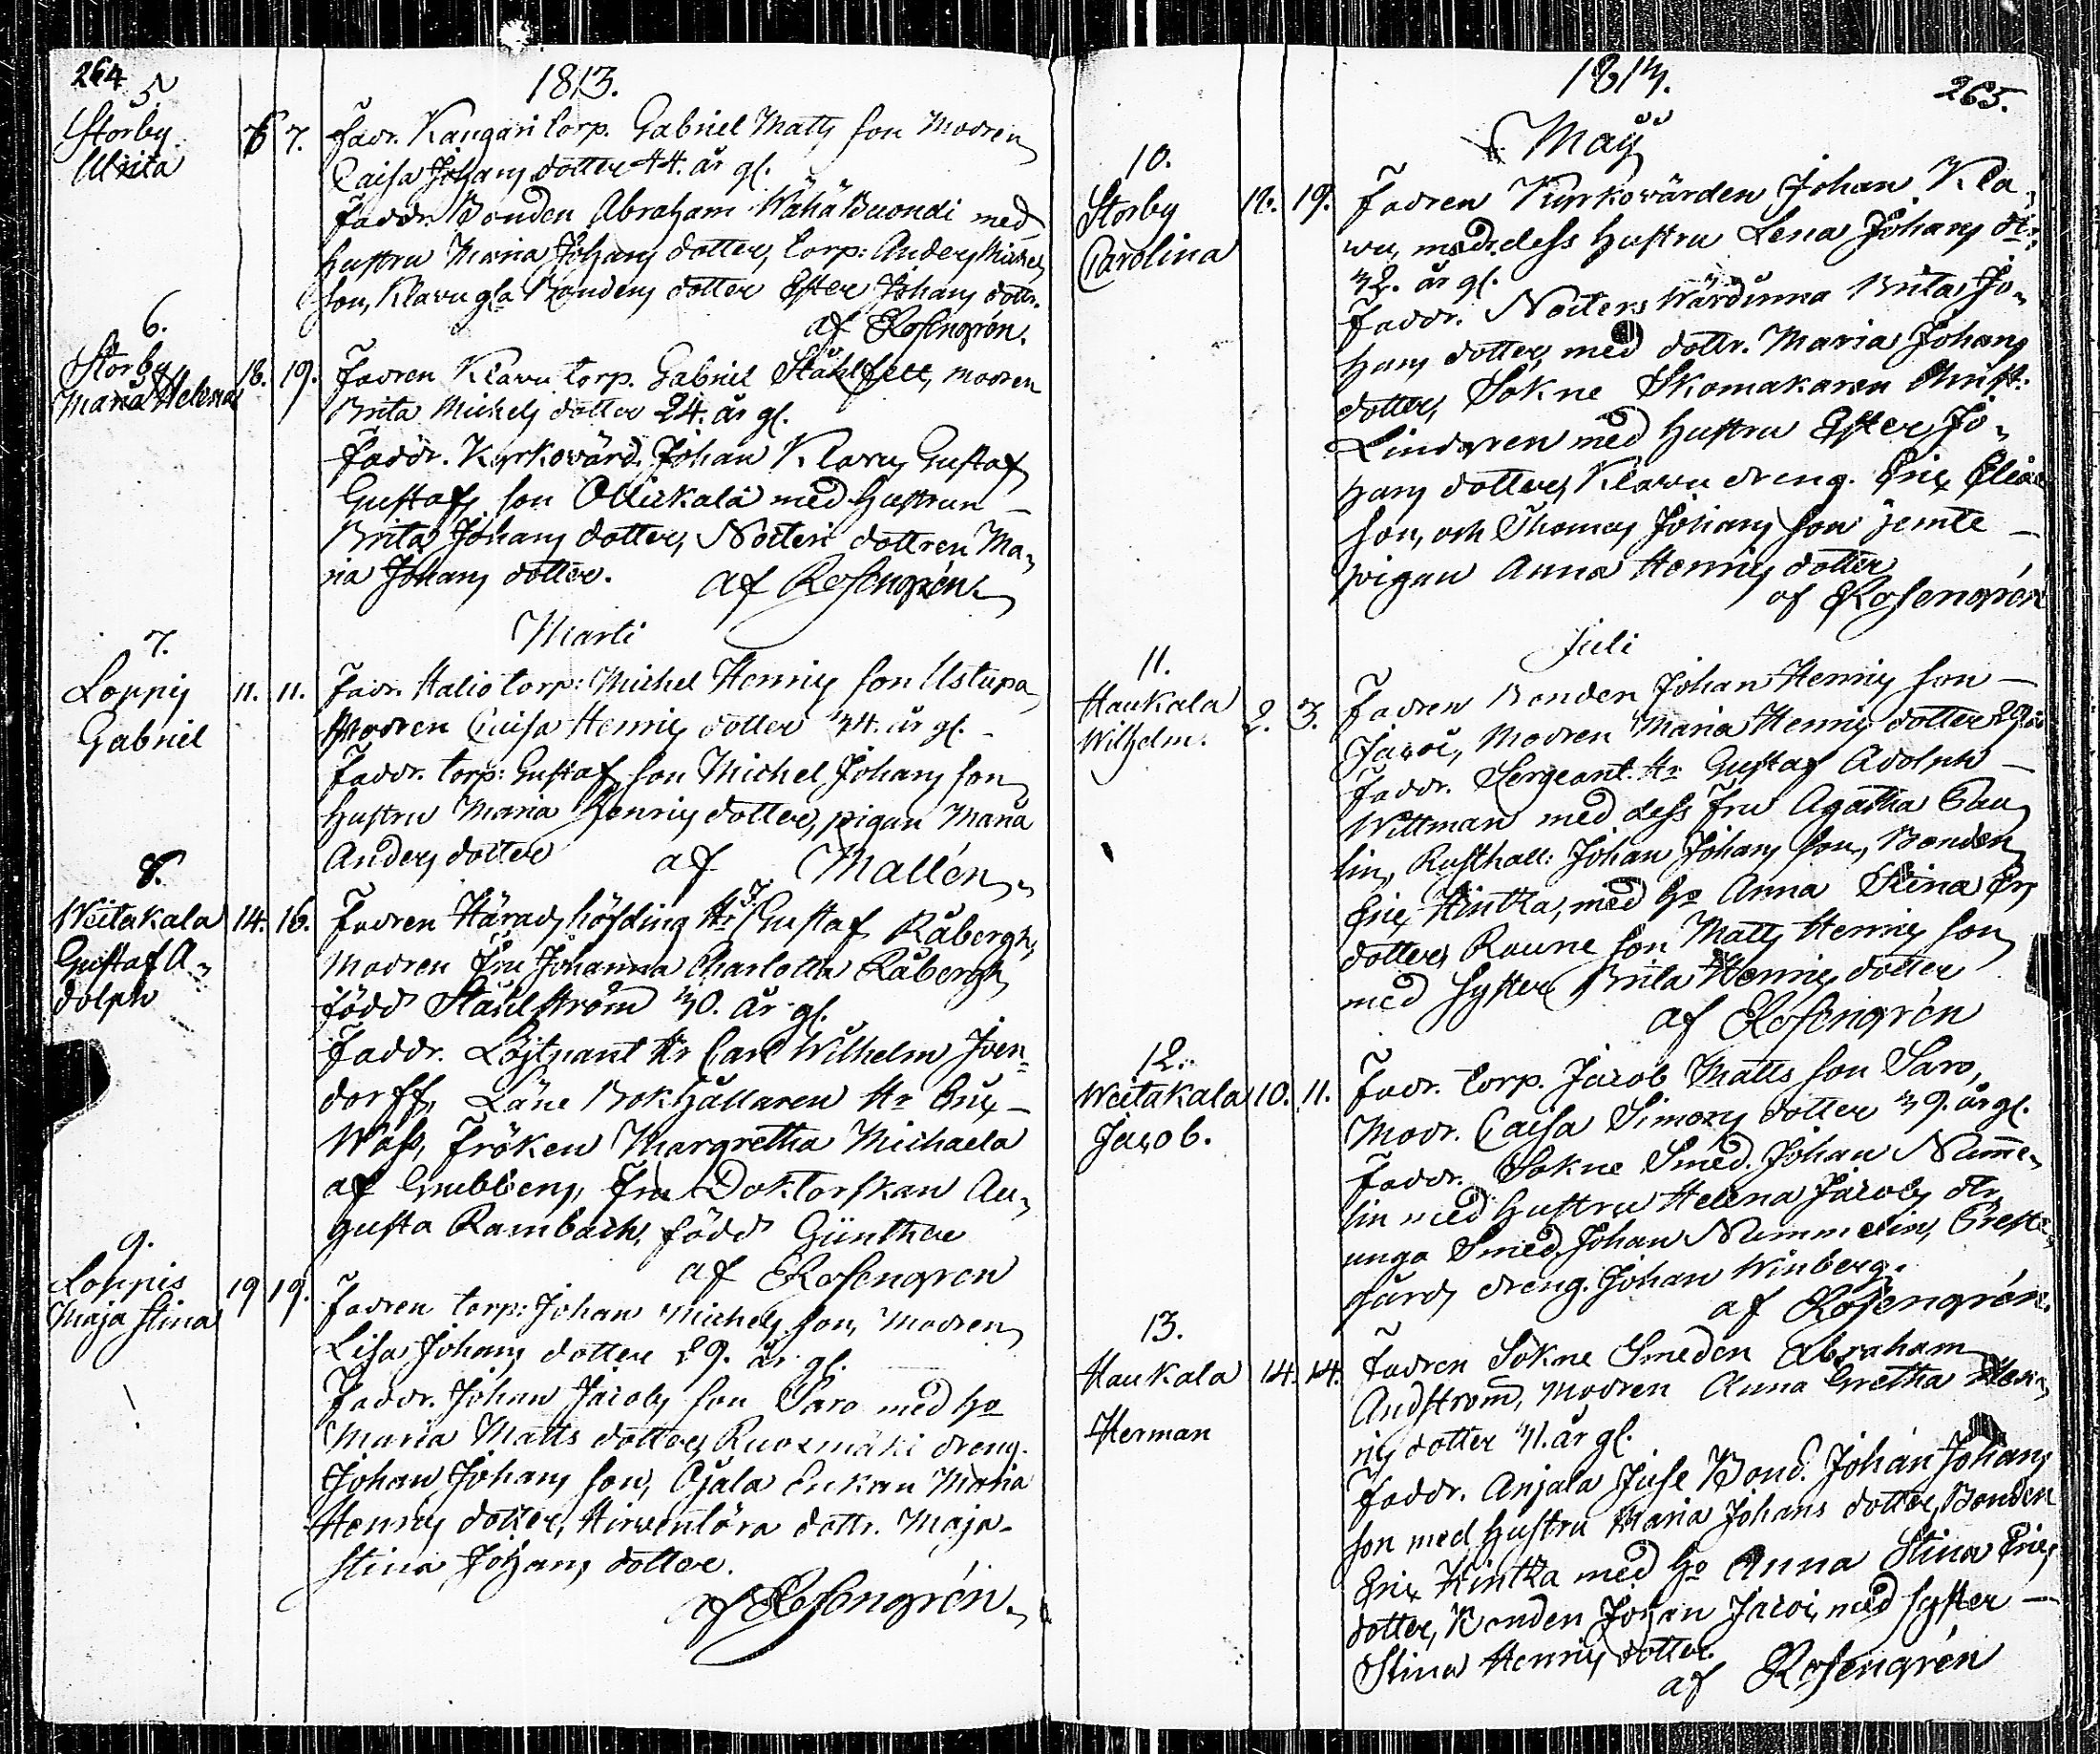 264
1813.
5.
Storby
Ulrica
6 7. Fadr. Kangari torp. Gabriel Matts son Modren
Caisa Johans dotter 44. år gl.
Faddr. Bonden Abraham Wähä Buondi med
hustru Maria Johans dotter, torp: Anders Michels
son, Klavu gla Bondens dotter Ester Johans dottr.
af Rosengrén.
6.
Storby
Maria Helena
18. 19. Fadren Klavu torp. Gabriel Ståhlfelt, modren
Brita Michels dotter 24. år gl.
Faddr. Kyrkovärd. Johan Klavu, Gustaf
Gustafs son Ollickala med hustrun
Brita Johans dotter, Noiteri dottren Ma-
ria Johans dotter. af Rosengrén.
Marti
7.
Loppis
Gabriel
11. 11. Fadr. Halio torp: Michel Henrics son Ustupa
Modren Caisa Henrics dotter 34. år gl.
Faddr. torp: Gustafs son Michel Johans son
hustru Maria Henrics dotter, pigan Maria
Anders dotter af Mallén.
8.
Weitakala
Gustaf A-
dolph
14. 16. Fadren Härads höfding Hr Gustaf Råbergh,
Modren Fru Johanna Charlotta Råbergh
född Ståhlström 30. år gl.
Faddr. Löjtnant Hr Carl Wilhelm Iven-
dorff, Läne Bokhållaren Hr Eric
Wass, Fröken Margretha Michaela
af Grubbens, Fru Doktorskan Au-
gusta Rambach, född Günther
af Rosengren
9.
Loppis
Maja Stina
19 19. Fadren torp: Johan Michels son, Modren
Lisa Johans dotter 29. år gl.
Faddr. Johan Jacobs son Saro med ho
Maria Matts dotter, Ruoxmäki dreng.
Johan Johans son, Ojala Enkan Maria
Henrics dotter, Hirvenlöra dottr. Maja
Stina Johans dotter.
af Rosengrén.
1813.
265.
May
10.
Storby
Carolina
12. 19. Fadren Kyrkovärden Johan Kla-
vu, modr. dess hustru Lena Johans dr.
32. år gl.
Faddr. Noiters Wärdinna Brita Jo-
hans dotter, med dottr. Maria Johans
dotter, Sokne Skomakaren Christ:
Lindgren med hustru Ester Jo-
hans dotter, Klavu dreng. Eric Elias
son, och Thomas Johans son jemte
pigan Anna Henrics dotter
af Rosengrén
Juli
11.
Haukala
Wilhelm.
2. 3. Fadren Bonden Johan Henrics son
Jacoi, Modren Maria Henrics dotter 29 år
Faddr. Sergeant Hr Gustaf Adolph
Wittman med dess Fru Agatha Pau
lin, Rusthåll: Johan Johans son, Bonden
Eric Hintka, med ho Anna Stina Ers
dotter, Raune son Matts Henrics son
med syster Brita Henrics dotter
af Rosengrén
12.
Weitakala
Jacob.
10. 11. Fadr. torp. Jacob Matts son Saro,
Modr. Caisa Simons dotter 39. år gl.
Faddr. Sokne Smed. Johan Numme-
lin med hustru Helena Jacobs dtr,
unga Smed. Johan Nummelin, Prest-
gårds dreng. Johan Winberg.
af Rosengrén.
13.
Haukala
Herman
14. 14. Fadren Sokne Smeden Abraham
Andström, modren Anna Gretha Hen-
rics dotter 31. år gl.
Faddr. Anjala Juse Bond. Johan Johans
son med hustru Maria Johans dotter, Bonden
Eric Hintka med ho Anna Stina Erics
dotter, Bonden Johan Jacoi, med syster
Stina Henrics dotter.
af Rosengrén